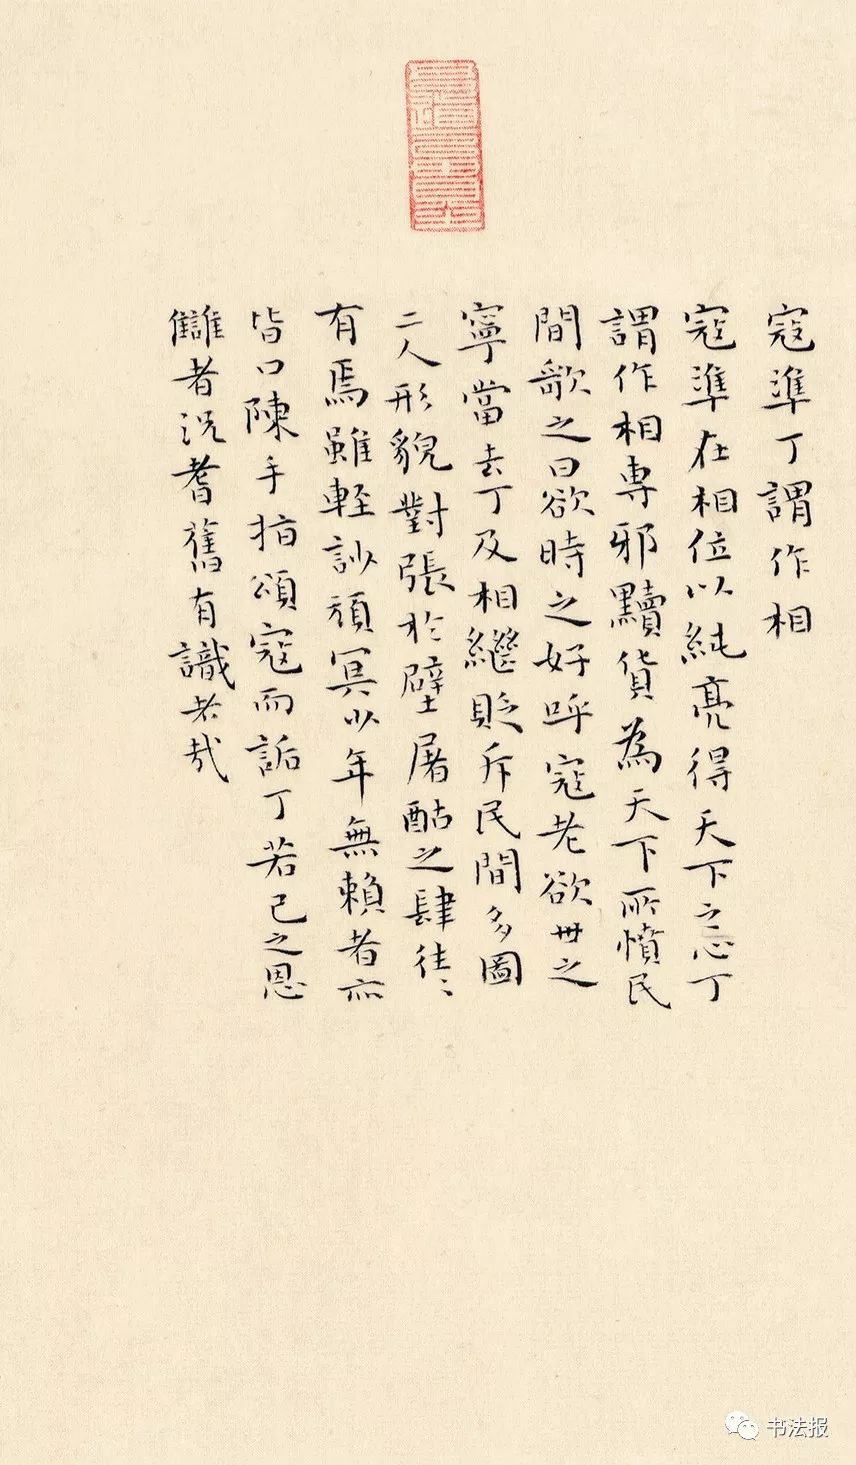 寇準丁謂作相
寇準在相位以純亮得天下之心丁
謂作相專邪黷貨為天下所憤民
間歌之曰欲時之好呼寇老欲世之
寧當去丁及相繼貶斥民間多圖
二人形貌對張於壁屠酤之肆往〻
有焉雖輕訬頑冥少年無賴者亦
皆口陳手指頌寇而詬丁若己之恩
讎者況耆舊有識者哉
书法报